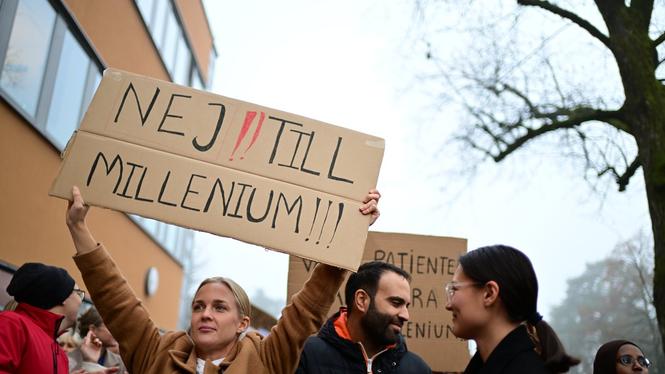 NEJ!! TILL
MILLENIUM!!!
PATIENTE
ARA
ENIUM